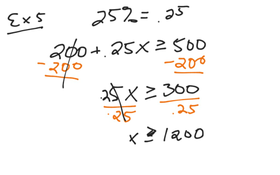 Ex 5 25% = .25
200 + .25x ≥ 500
-200 -200
.25x ≥ 300
.25 .25
x ≥ 1200